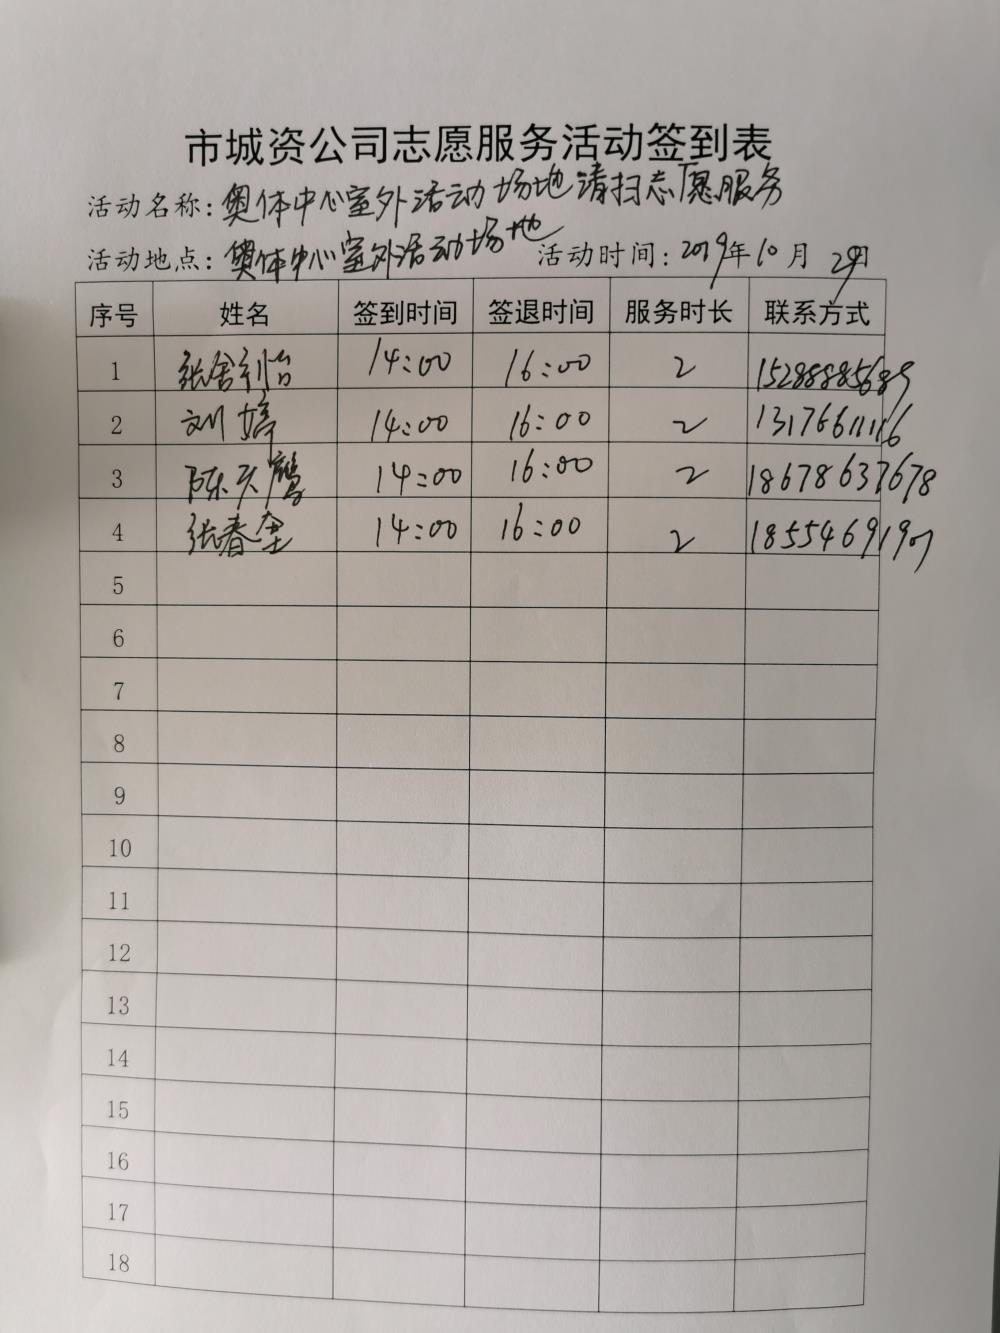 市城资公司志愿服务活动签到表
活动名称：奥体中心室外活动场地清扫志愿服务
活动地点：奥体中心室外活动场地 活动时间：2019年10月29日
序号 姓名 签到时间 签退时间 服务时长 联系方式
1 张 14:00 16:00 2 15288885689
2 刘婷 14:00 16:00 2 13176611116
3 陈天鹰 14:00 16:00 2 18678637678
4 张春 14:00 16:00 2 18554691907
5
6
7
8
9
10
11
12
13
14
15
16
17
18